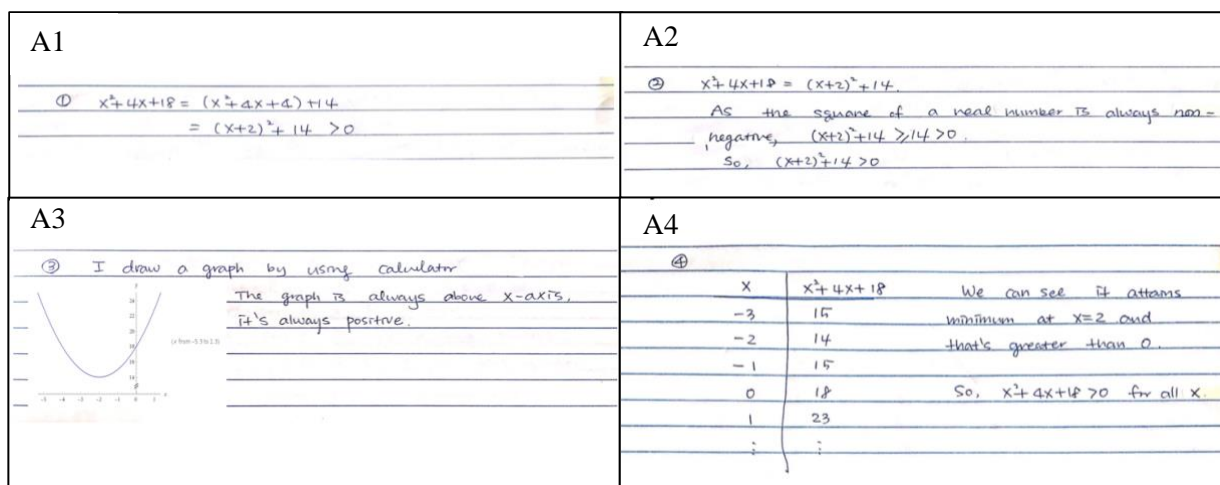 A1
① x²+4x+18 = (x²+4x+4)+14
= (x+2)²+14 >0
A2
② x²+4x+18 = (x+2)²+14.
As the square of a real number is always non-
negative, (x+2)²+14 ≥14>0.
So, (x+2)²+14>0
A3
③ I draw a graph by using calculator
The graph is always above x-axis,
it's always positive.
y
24
22
20
18
16
14
-5 -4 -3 -2 -1 0 1
x
A4
④
x x²+4x+18
-3 15
-2 14
-1 15
0 18
1 23
⋮ ⋮
We can see it attains
minimum at x=2 and
that's greater than 0.
So, x²+4x+18>0 for all x.